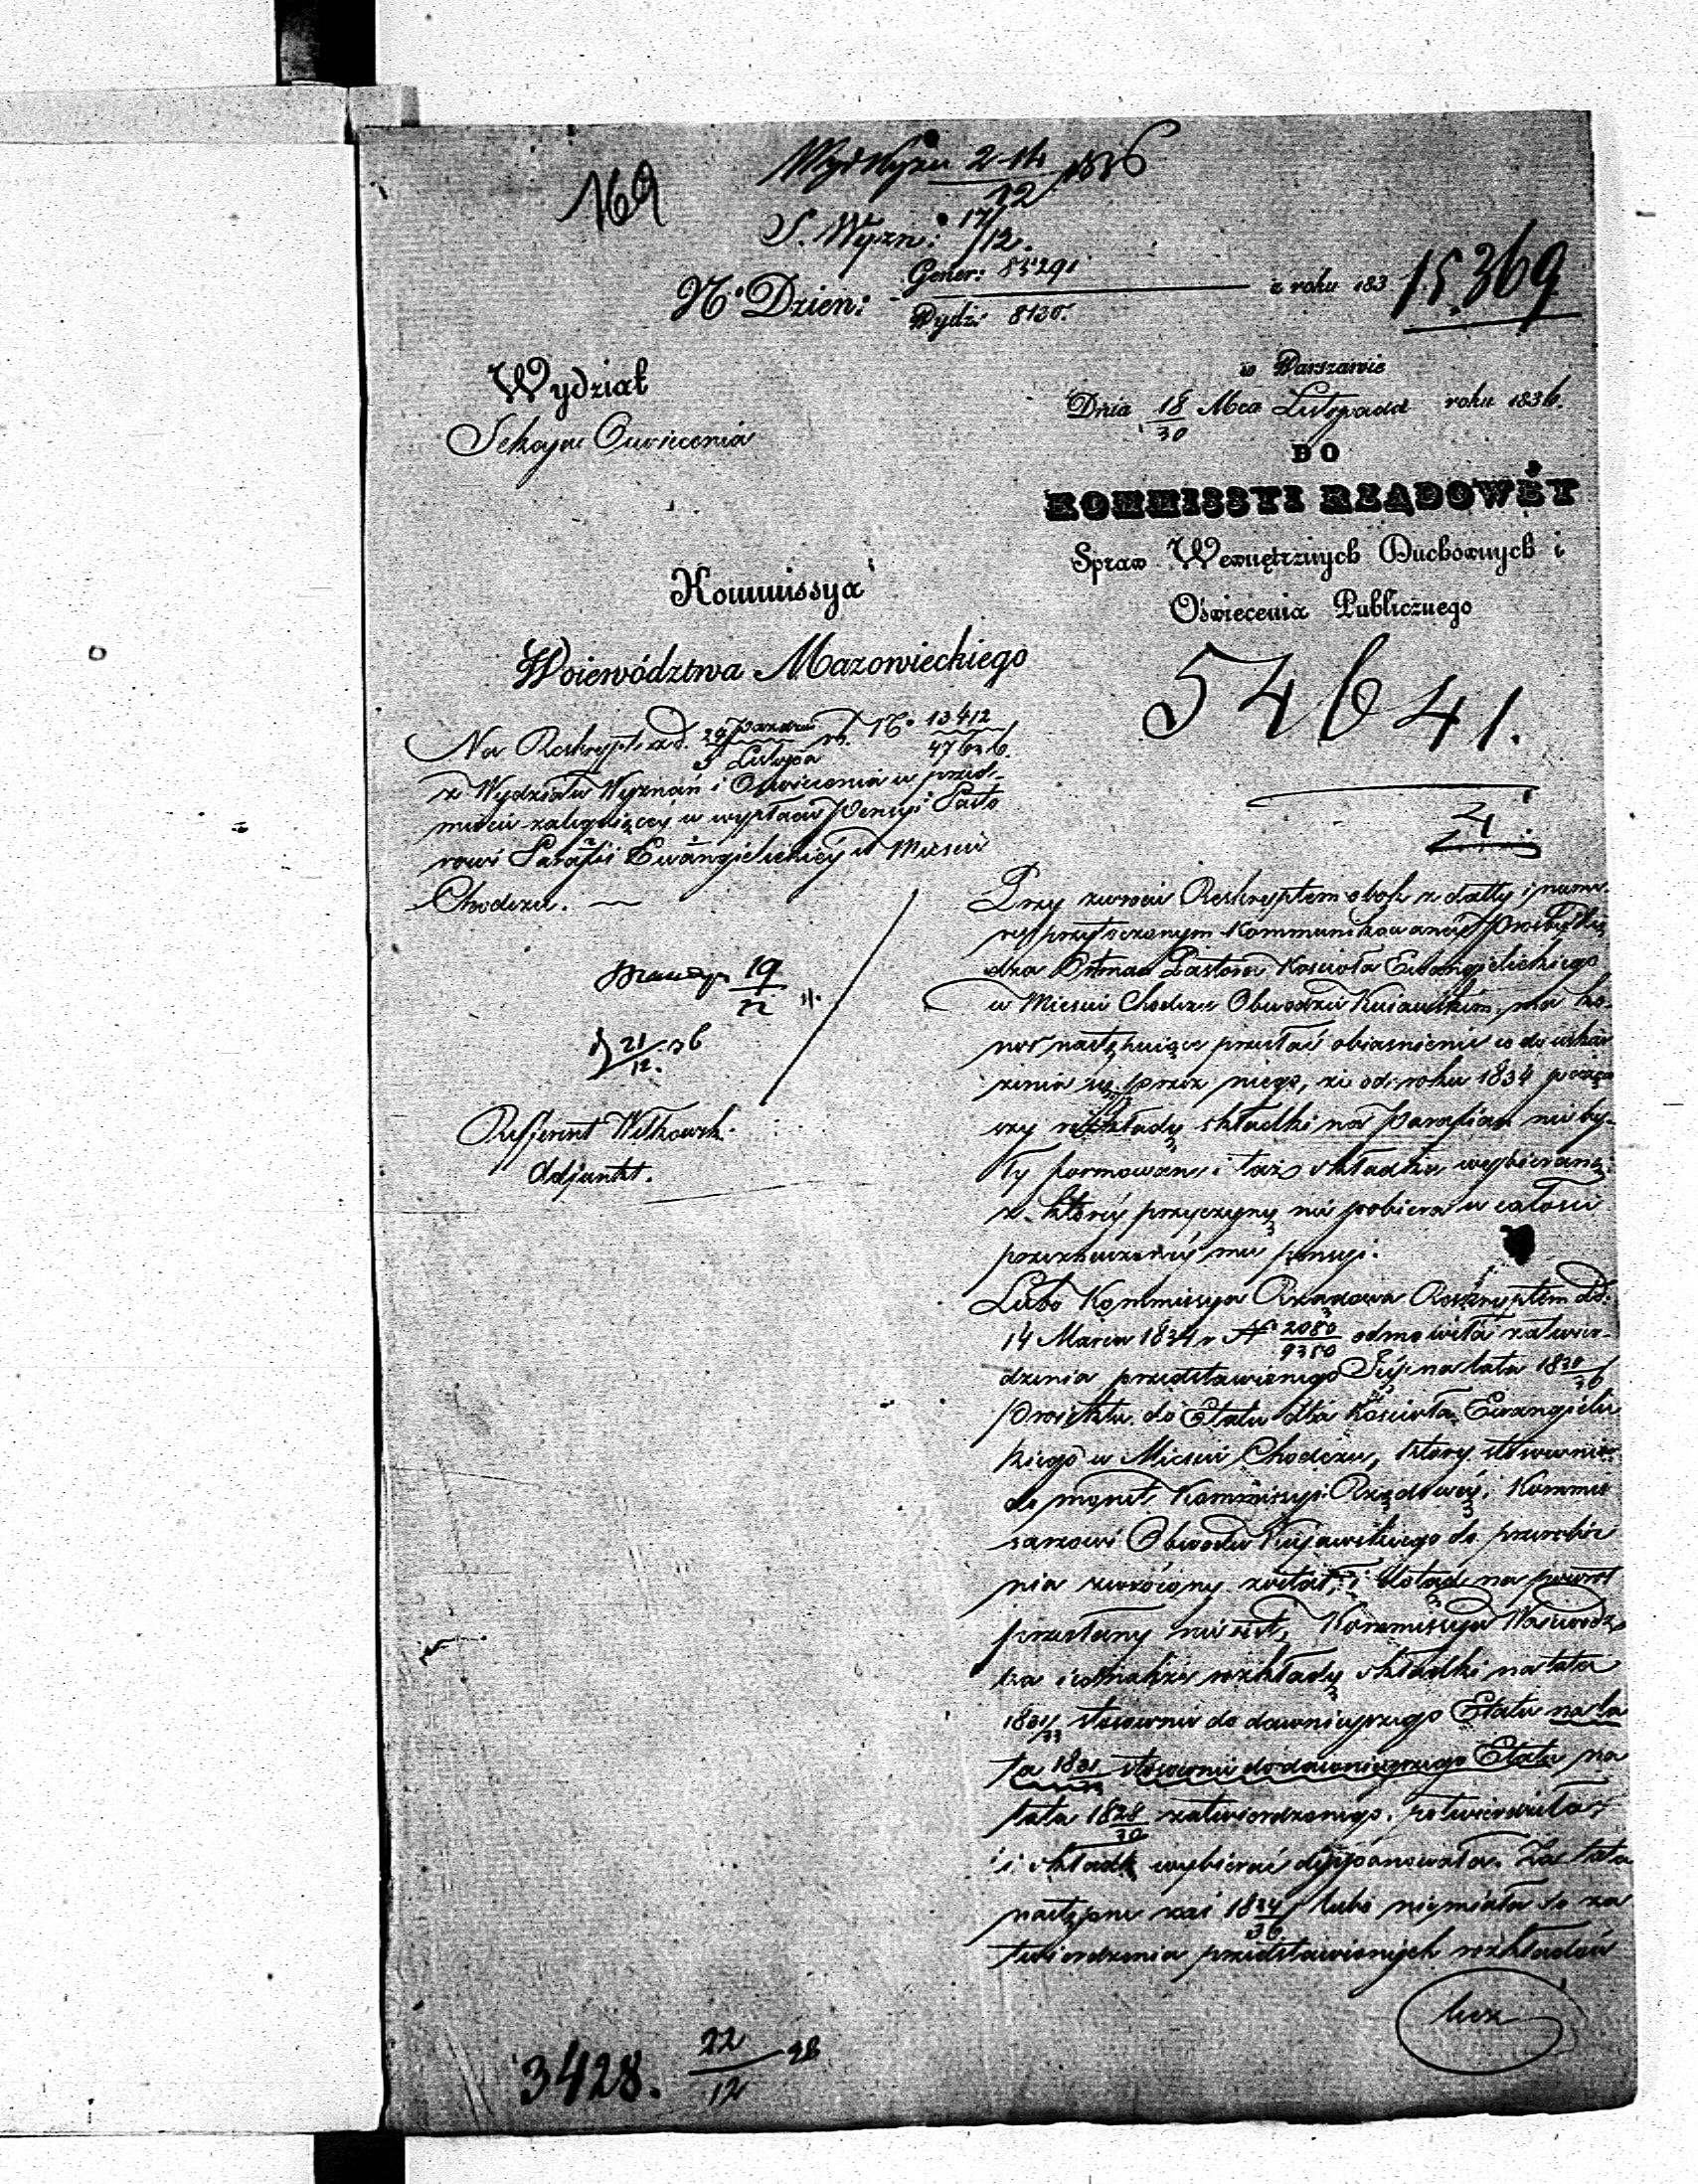 169
Wyd Wyzn 2-14/12 1836
S. Wyzn: 17/12.
N.º Dzien: Gener: 85291 z roku 183
Wydz: 8130.
15.369
Wydział
Sekcya Oswiecenia
w Warszawie
Dnia 18/30 Mca Listopada roku 1836.
DO
KOMMISSYI RZĄDOWÉY
Spraw Wewnętrznych Duchownych i
Oświecenia Publicznego
Kommissya
Woiewództwa Mazowieckiego
54641.
4.
Na Reskrypt z d. Pazdzier/Listopa rb. Nº 13412/47636.
z Wydziału Wyznań i Oswiecenia w przed-
miocie zalegaiącey w wypłacie Pensyi Pasto
rowi Parafii Ewangielickiey w Miescie
Chodczu.
19/12
21/12. 36
Refferent Witkowsk.
Adjunkt.
Przy zwrocie Reskryptem obok z datty i nume-
ru przytoczonym kommunikowaney Prosby Xię
dza Pastora Kościoła Ewangielickiego
w Miescie Chodczu Obwodzie Kuiawskim, ma ho-
nor następuiące przesłać obiasnienie co do uskar
zenia się przez niego, że od roku 1834 począw
szy rozkłady składki na Parafian nie by-
ły formowane i taż składka wybieraną
z którey przyczyny nie pobiera w całości
przeznaczoney mu pensyi.
Lubo Kommissya Rządowa Reskryptem z d.
14 Marca 1834 r Nº 2080/9350 odmówiła zatwier-
dzenia przedstawionego Jey na lata 1831/36
Proiektu do Etatu dla Kościoła Ewangielic
kiego w Miescie Chodczu, który stosownie
do monit Kommissyi Rządowey Kommis
sarzowi Obwodu Kujawskiego do przerobie
nia zwrócony został, i dotąd na powrot
przesłany nie iest, Kommissya Woiewodz
ka iednakże rozkłady składki na lata
1831/33 stosownie do dawnieyszego Etatu na la
ta 1831/33 stosownie do dawnieyszego Etatu na
lata 1828/30 zatwierdzonego, zatwierdziła,
i składkę wybierać dysponowała. Za lata
następne zaś 1834/36 lubo niemiała so za
twierdzenia przedstawionych rozkładów
lecz
3428. 22/12 36